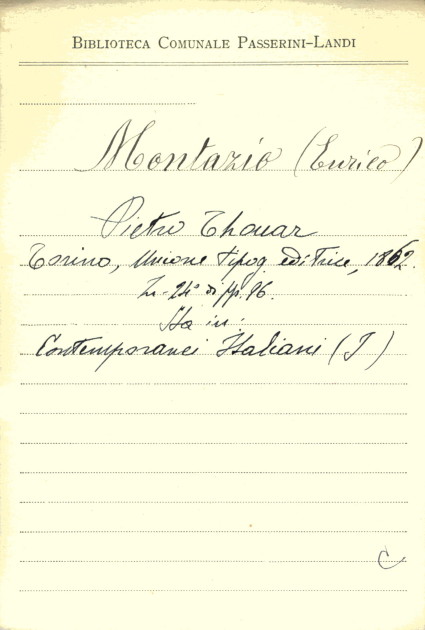 BIBLIOTECA COMUNALE PASSERINI-LANDI
Montazio (Enrico)
Pietro Thouar
Torino, Unione tipog. editrice, 1862.
In-24° di pp. 96.
Sta in:
Contemporanei Italiani (I)
C